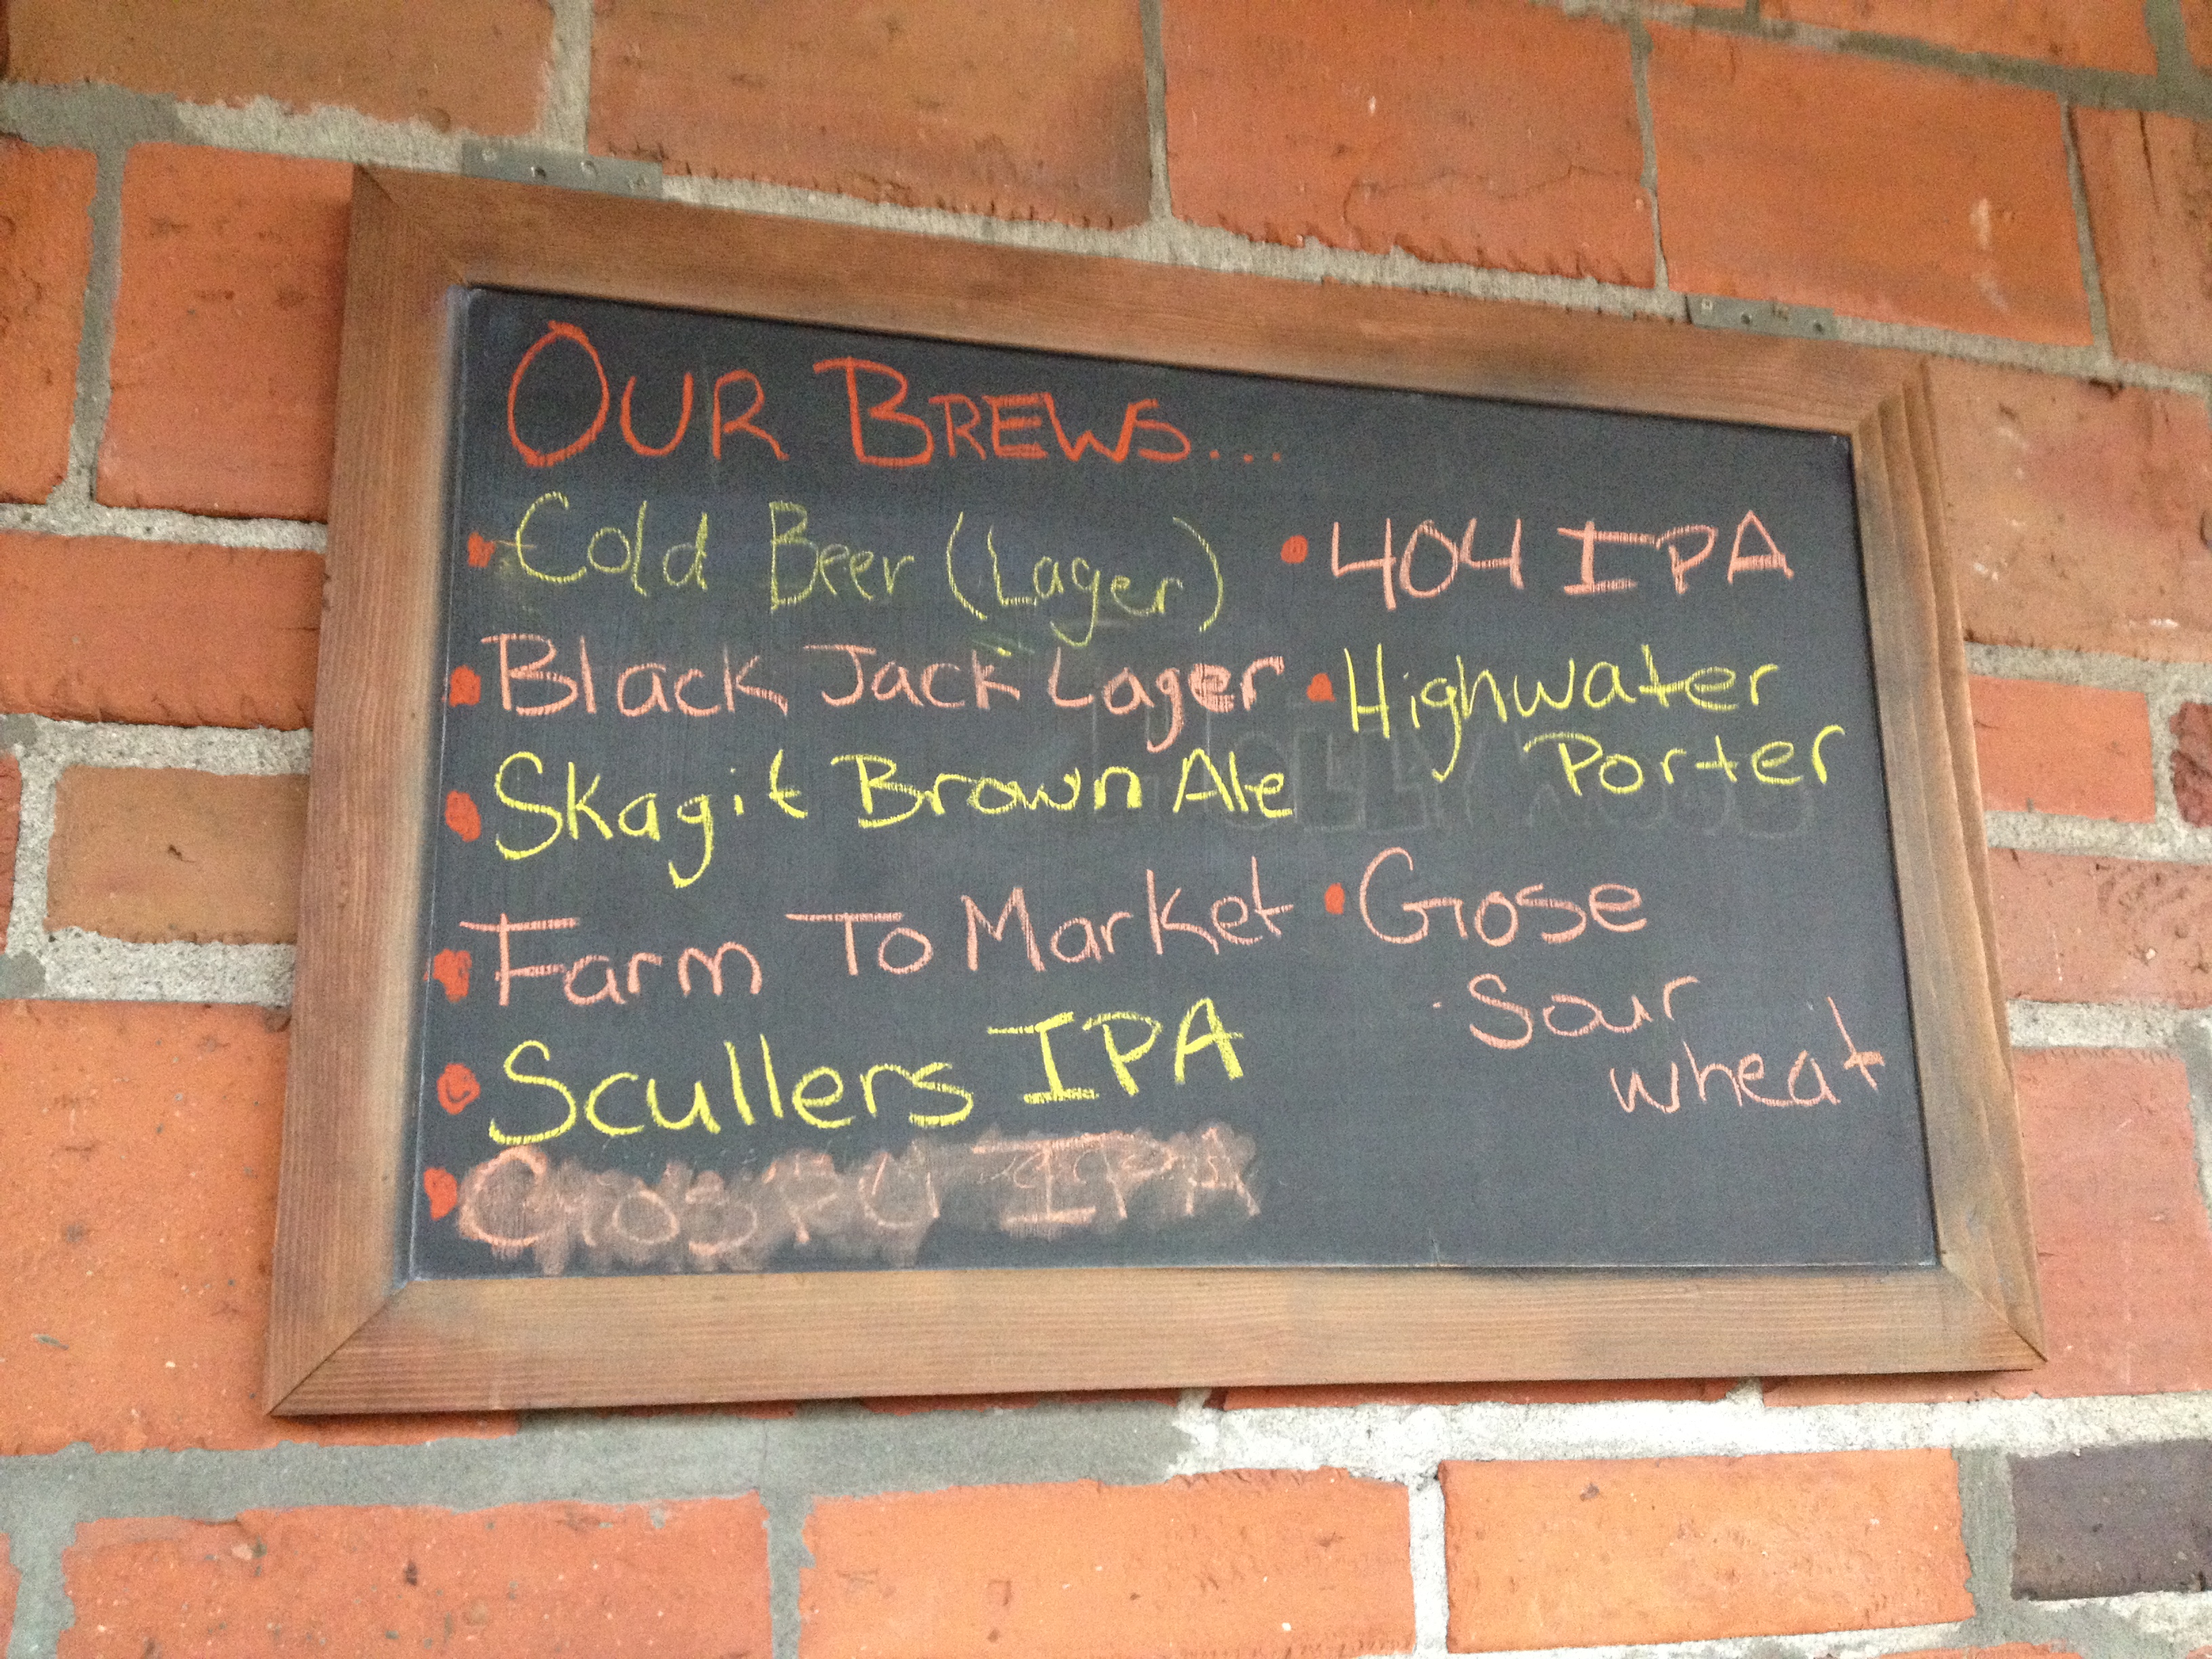 OUR BREWS...
Cold Beer (Lager)
Black Jack Lager
Skagit Brown Ale
Farm To Market
Scullers IPA
IPA
404 IPA
Highwater
Porter
Gose
Sour
wheat